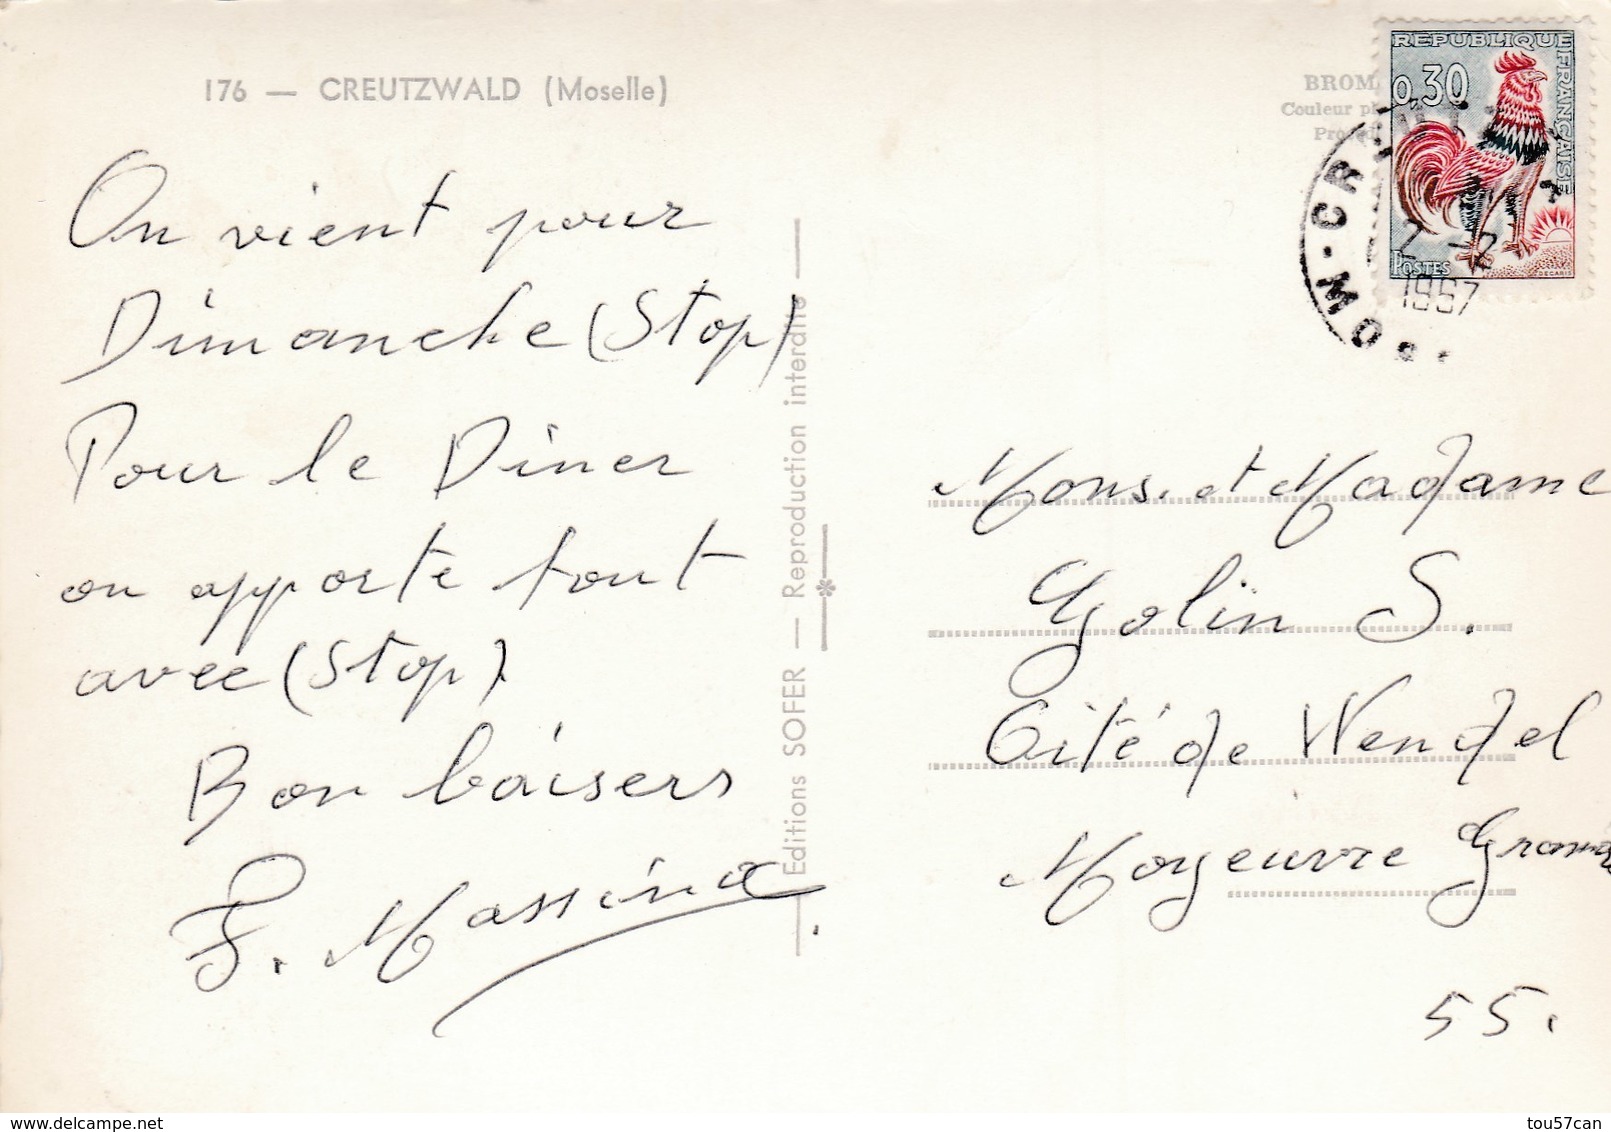 176 — CREUTZWALD (Moselle)
On vient pour
Dimanche (Stop)
Pour le Diner
on apporte tout
avec (Stop)
Bon baisers
F. Massina
Editions SOFER — Reproduction interdite
BROM
Couleur
REPUBLIQUE FRANÇAISE
0,30
POSTES
DECARIS
1967
Mons. et Madame
Golin S.
Cité de Wendel
Moyeuvre Grande
55.
delcampe.net
tou57can